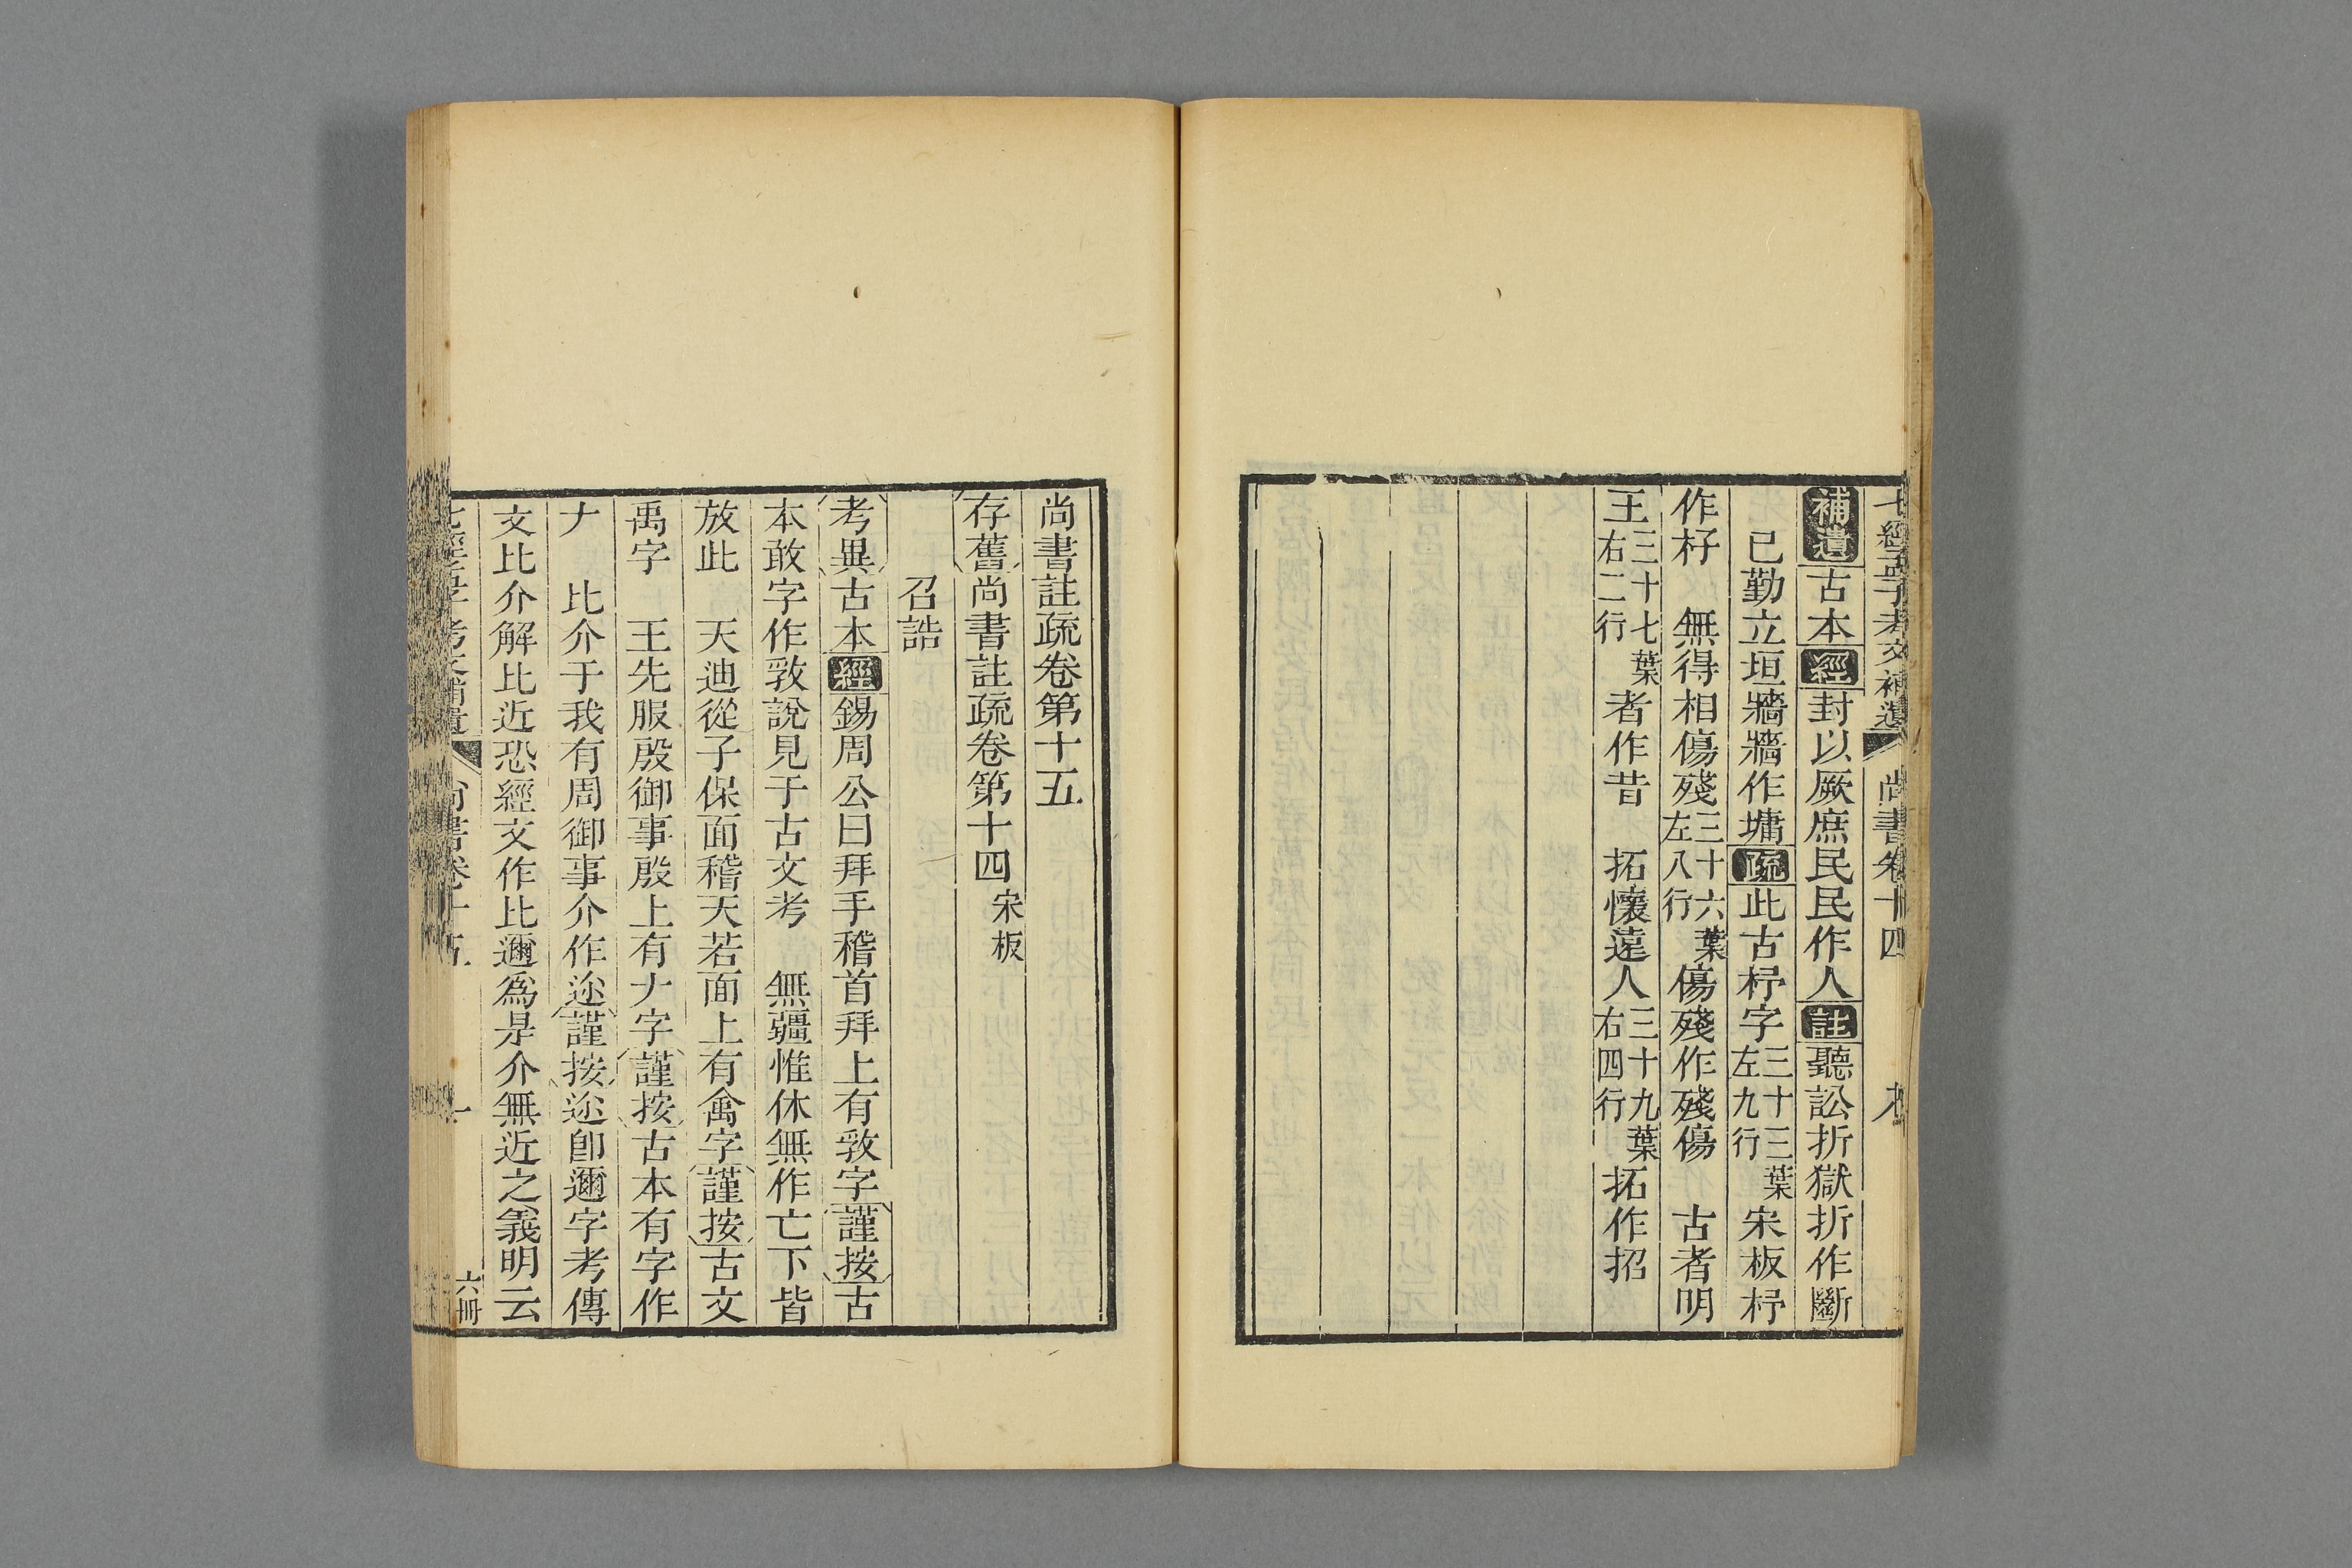 七經孟子考文補遺 尚書卷十四 九
補遺 古本 經 封以厥庶民民作人 註 聽訟折獄折作斷
已勤立垣牆牆作墉 疏 此古杍字三十三葉左九行 宋板杍
作杼 無得相傷殘三十六葉左八行傷殘作殘傷 古者明
王三十七葉右二行者作昔 拓懷遠人三十九葉右四行拓作招
尚書註疏卷第十五
存舊尚書註疏卷第十四宋板
召誥
考異古本 經 錫周公曰拜手稽首拜上有敦字謹按古
本敢字作敦說見于古文考 無疆惟休無作亡下皆
放此 天迪從子保面稽天若面上有禽字謹按古文
禹字 王先服殷御事殷上有𠂇字謹按古本有字作
𠂇 比介于我有周御事介作迩謹按迩卽邇字考傳
文比介解比近恐經文作比邇爲是介無近之義明云
七經孟子考文補遺 尚書卷十五 一 六冊